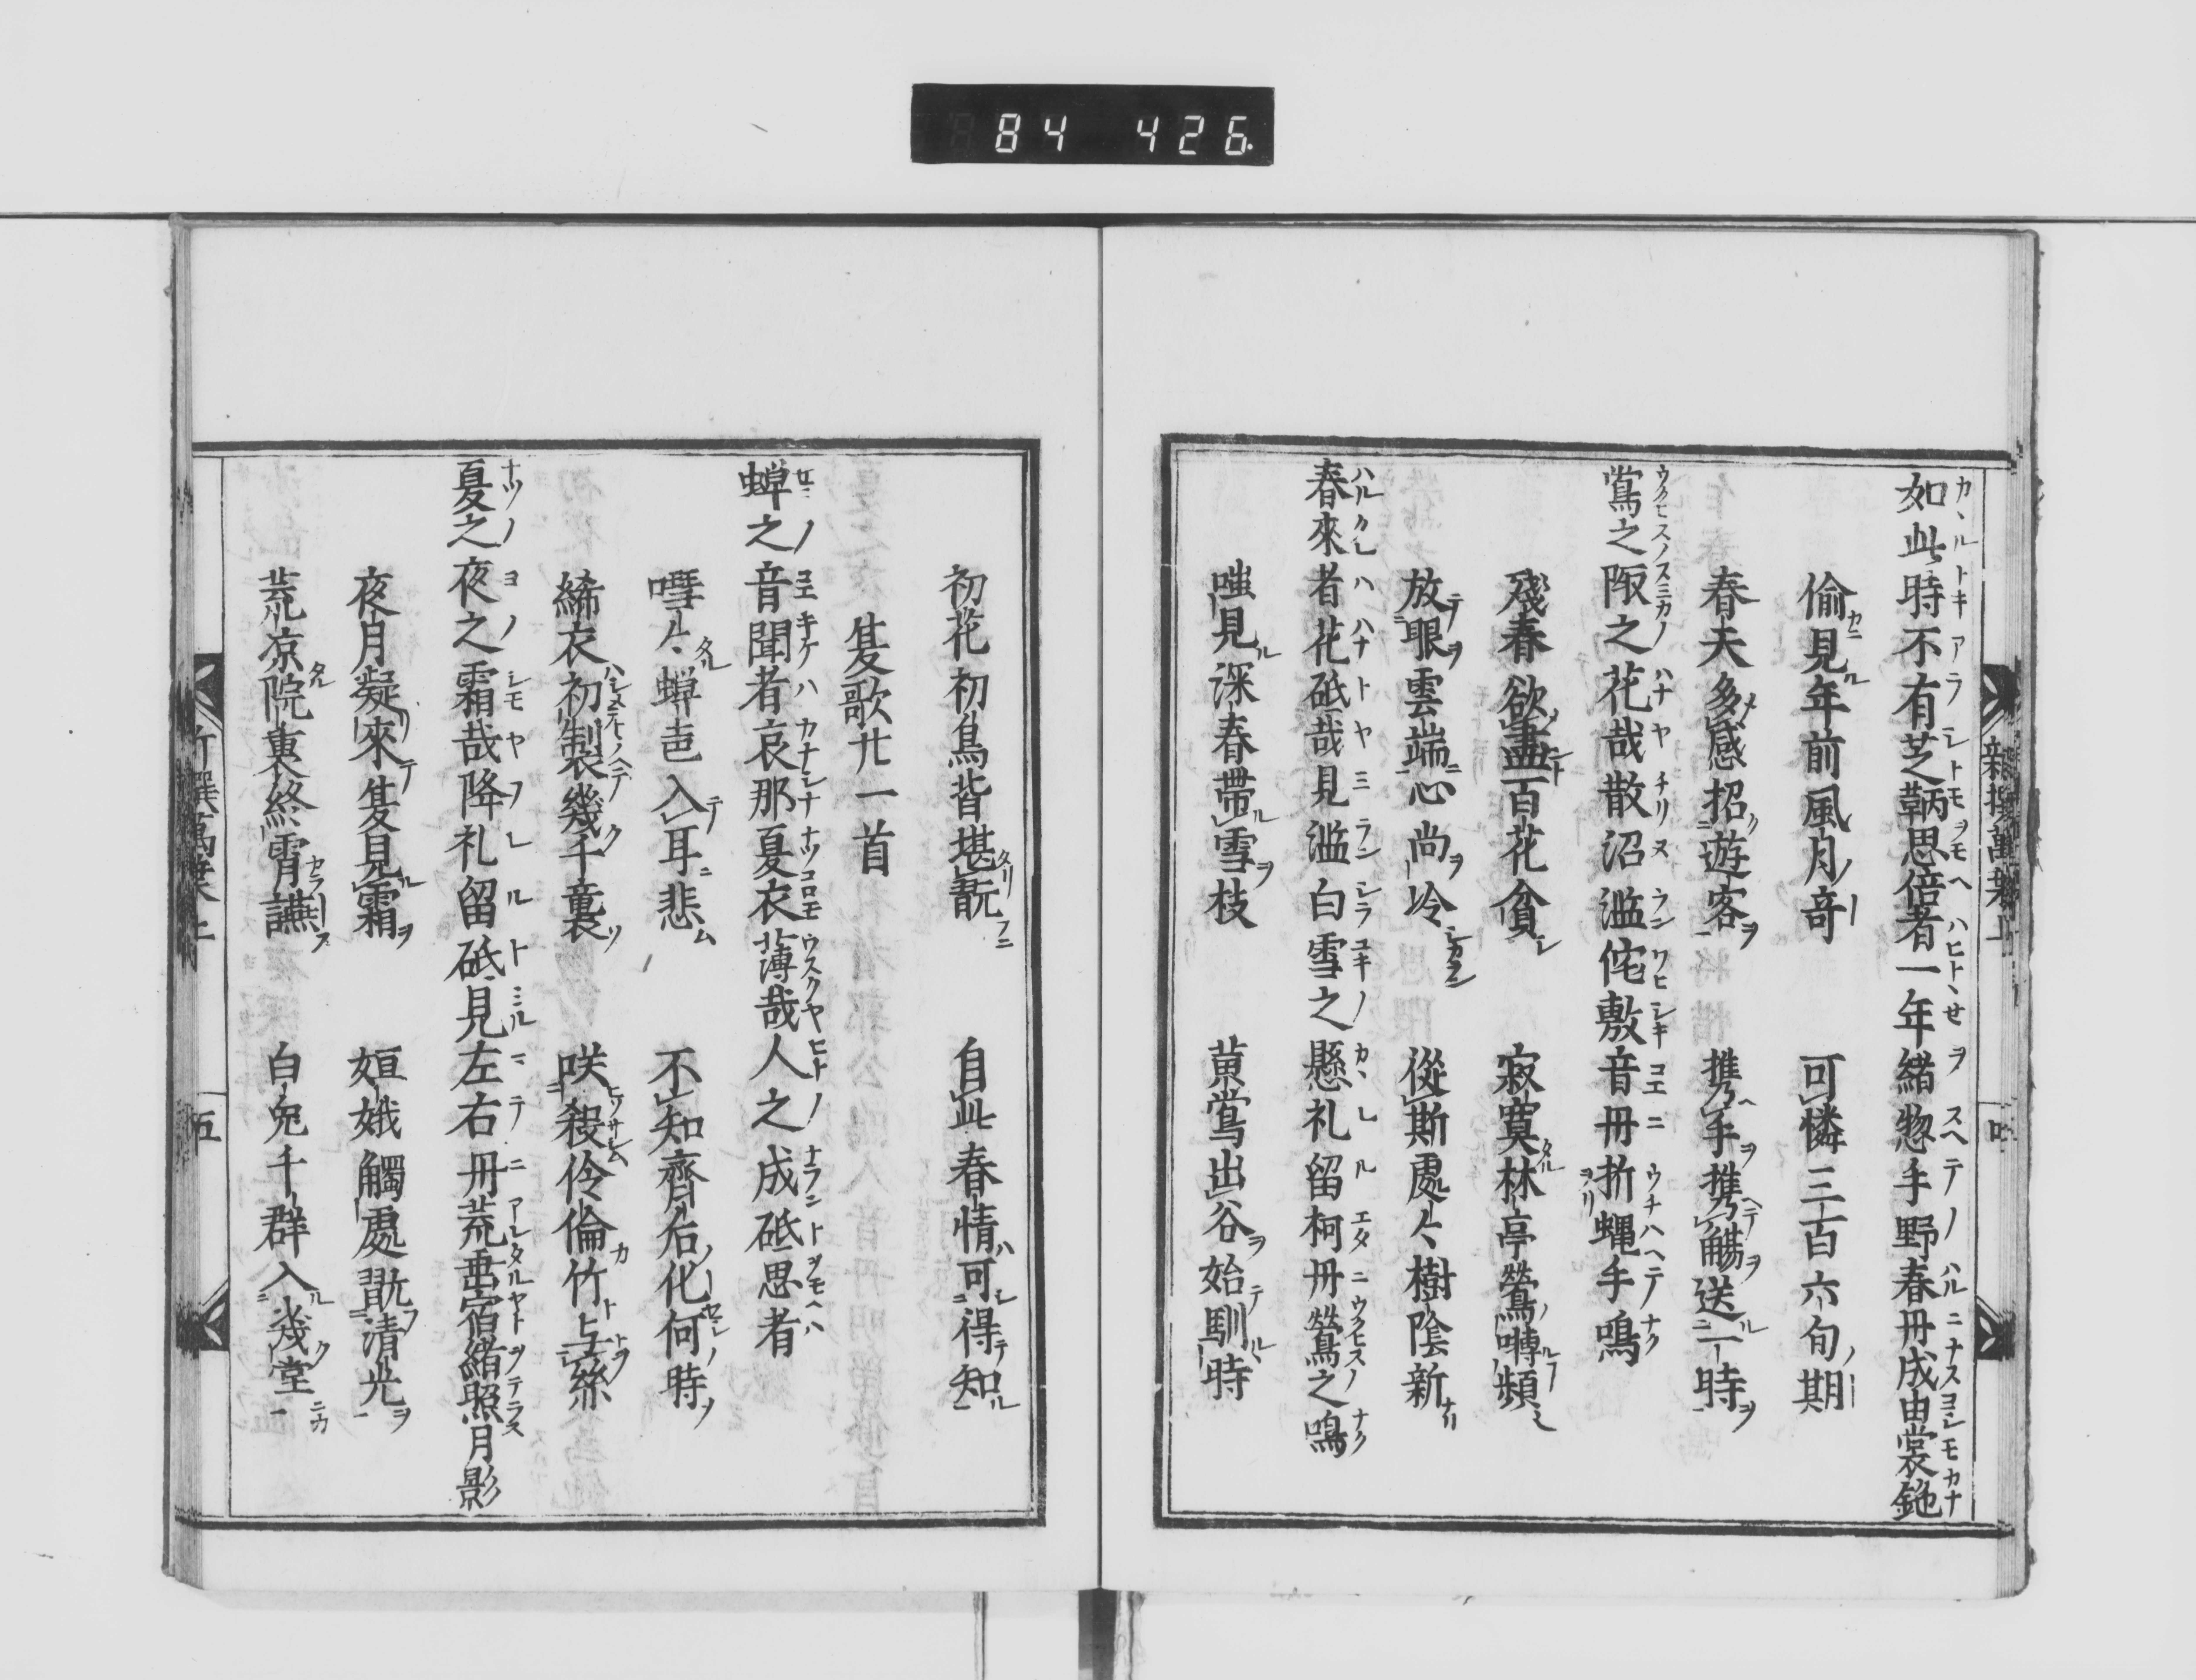 84 426
如此時不有芝鞆思倍者一年緒惣手野春丹成由裳鉇
偷見年前風月竒 可憐三百六旬期
春天多感招遊客 携手携觴送一時
鶯之陬之花哉散沼濫侘敷音丹折蝿手鳴
殘春欲盡百花貧 寂寞林亭鶯囀頻
放眼雲端心尚冷 從斯處々樹陰新
春來者花砥哉見濫白雪之懸礼留柯丹鶯之鳴
嗤見深春帶雪枝 黄鶯出谷始馴時
初花初鳥皆堪翫 自此春情可得知
夏歌廿一首
蝉之音聞者哀那夏衣薄哉人之成砥思者
嘒々蝉聲入耳悲 不知齊后化何時
絺衣初製幾千襲 咲殺伶倫竹与絲
夏之夜之霜哉降礼留砥見左右丹荒垂宿緒照月影
夜月凝來夏見霜 姮娥觸處翫清光
荒凉院裏終宵讌 白兔千群入幾堂